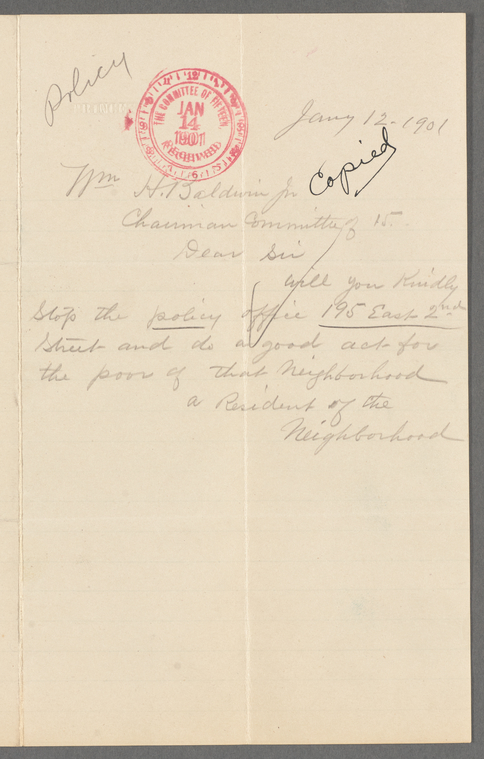 Policy
THE COMMITTEE OF FIFTEEN
JAN
14
1901
RECEIVED
Jany 12-1901
Copied
Wm H. Baldwin Jr
Chairman Committee of 15.
Dear Sir
Will you Kindly
Stop the policy office 195 East 2nd
Street and do a good act for
the poor of that Neighborhood
a Resident of the
Neighborhood